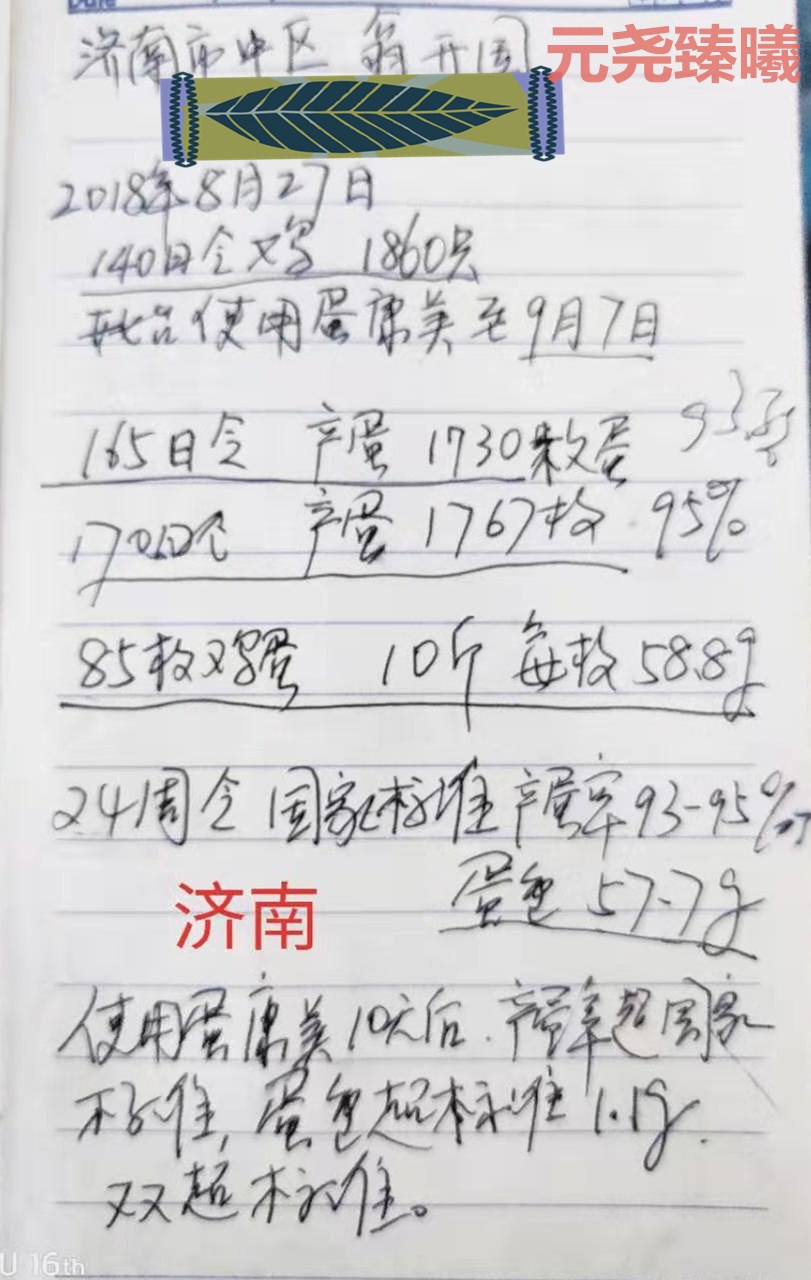 Date
济南市中区 翁开国
元尧臻曦
2018年8月27日
140日令鸡 1860只
开始使用蛋康美至9月7日
165日令 产蛋 1730枚蛋 93%
170日令 产蛋 1767枚 95%
85枚鸡蛋 10斤 每枚 58.8g
24周令 国家标准产蛋率93-95%
蛋包 57.7g
济南
使用蛋康美10天后.产蛋率超国家
标准,蛋包超标准1.1g.
双超标准。
U 16th